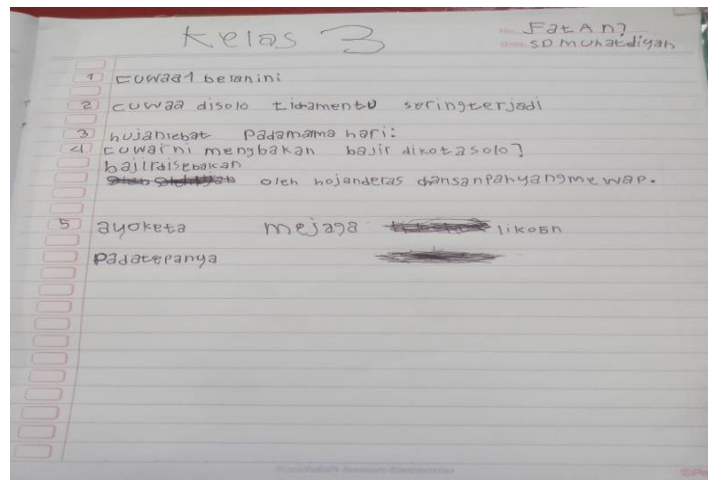 Kelas 3
No. Fatan?
SD muhatdiyah
1 cuwaa1 belanini
2 cuwaa disolo tidamentu seringterjadi
3 hujanlebat Padamama hari:
4 cuwaini mengbakan bajir dikotasolo?
bajirdisebakan
oleh hojanderas dansanpahyangmewap.
5 ayoketa mejaga likoen
Padatepanya